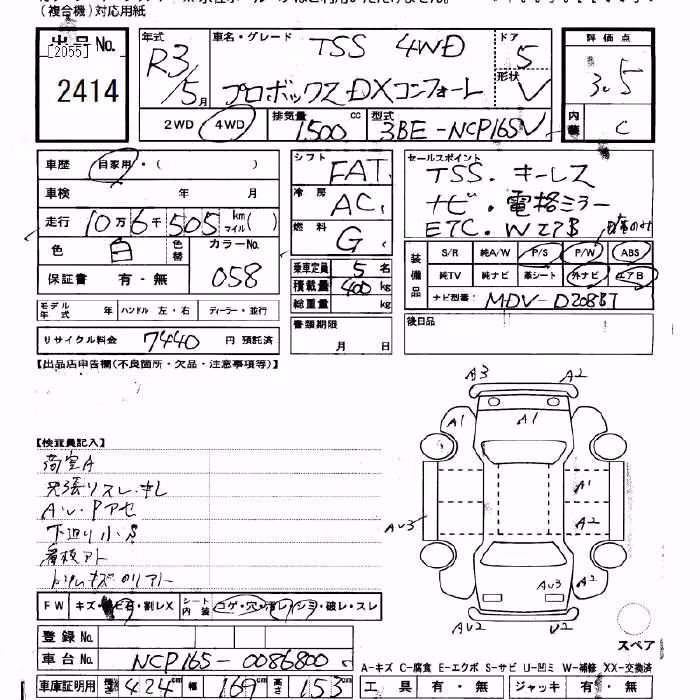 (複合機)対応用紙
出品No.
[2055]
2414
年式 R3/5月
車名・グレード TSS 4WD
プロボックスDXコンフォート
ドア 5
形状 V
2WD 4WD
排気量 1500 cc
型式 3BE-NCP165V
評価点 3.5
内装 C
車歴 自家用・( )
車検 年 月
走行 10万6千505 km マイル( )
色 白 色替 カラーNo. 058
保証書 有・無
モデル年式 年 ハンドル 左・右 ディーラー・並行
リサイクル料金 7440 円 預託済
シフト FAT
冷房 AC
燃料 G
乗車定員 5 名
積載量 400 kg
総重量 kg
書類期限 月 日
セールスポイント
TSS.キーレス
ナビ.電格ミラー
ETC.WエアB
装備品
S/R 純A/W P/S P/W ABS
純TV 純ナビ 革シート 外ナビ エアB
ナビ型番: MDV-D208BT
後日品
【出品店申告欄(不良箇所・欠品・注意事項等)】
【検査員記入】
荷室A
AW.Pアセ
下廻り小S
看板アト
FW キズ・ 石・割レX シート内装 コゲ・穴・ シミ・破レ・スレ
登録No.
車台No. NCP165-0086800
車庫証明用 長さ 424 cm 幅 169 cm 高さ 153 cm
A3 A2
A1
A1
A2
AV3
AV3 A2
AV2 V2
スペア
A-キズ C-腐食 E-エクボ S-サビ U-凹ミ W-補修 XX-交換済
工具 有・無 ジャッキ 有・無